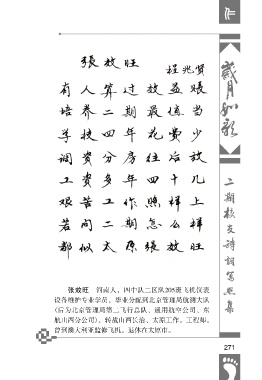 張效旺
程兆贤
有人算过放益账
培养二期最值当
学校四年花费少
调资分房往后放
工资多年四十几
艰苦工作照样上
若问二期怎么样
都似太原張效旺
张效旺 河南人,四中队二区队205班飞机仪表
设备维护专业学员,毕业分配到北京管理局航测大队
(后为北京管理局第二飞行总队、通用航空公司、东
航山西分公司),转战山西长治、太原工作,工程师,
曾到澳大利亚监修飞机。退休在太原市。
岁月如歌
二期校友诗词写照集
271